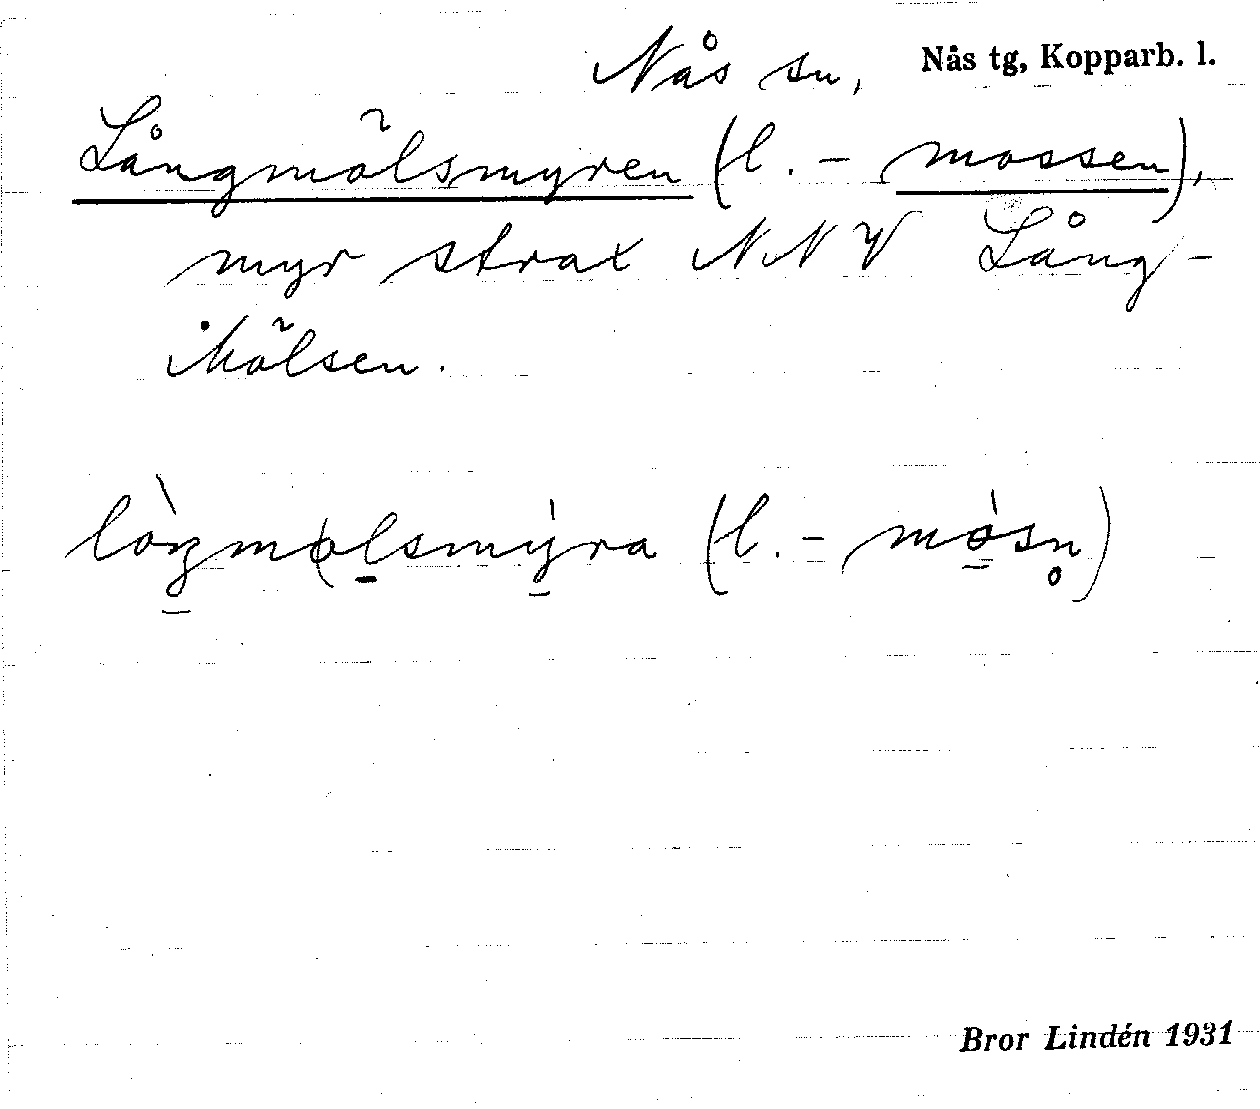 Nås sn, Nås tg, Kopparb. l.
Långmölsmyren (l. - mossen),
myr strax NNV Lång-
Mölsen.
(l. -
Bror Lindén 1931